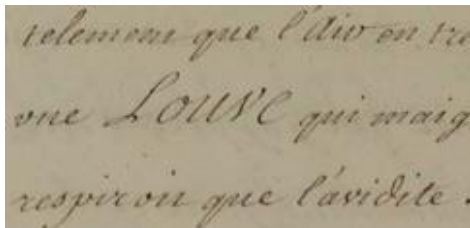 telement que l'air en tre
une LOUVE qui maig
respiroit que l'avidite.